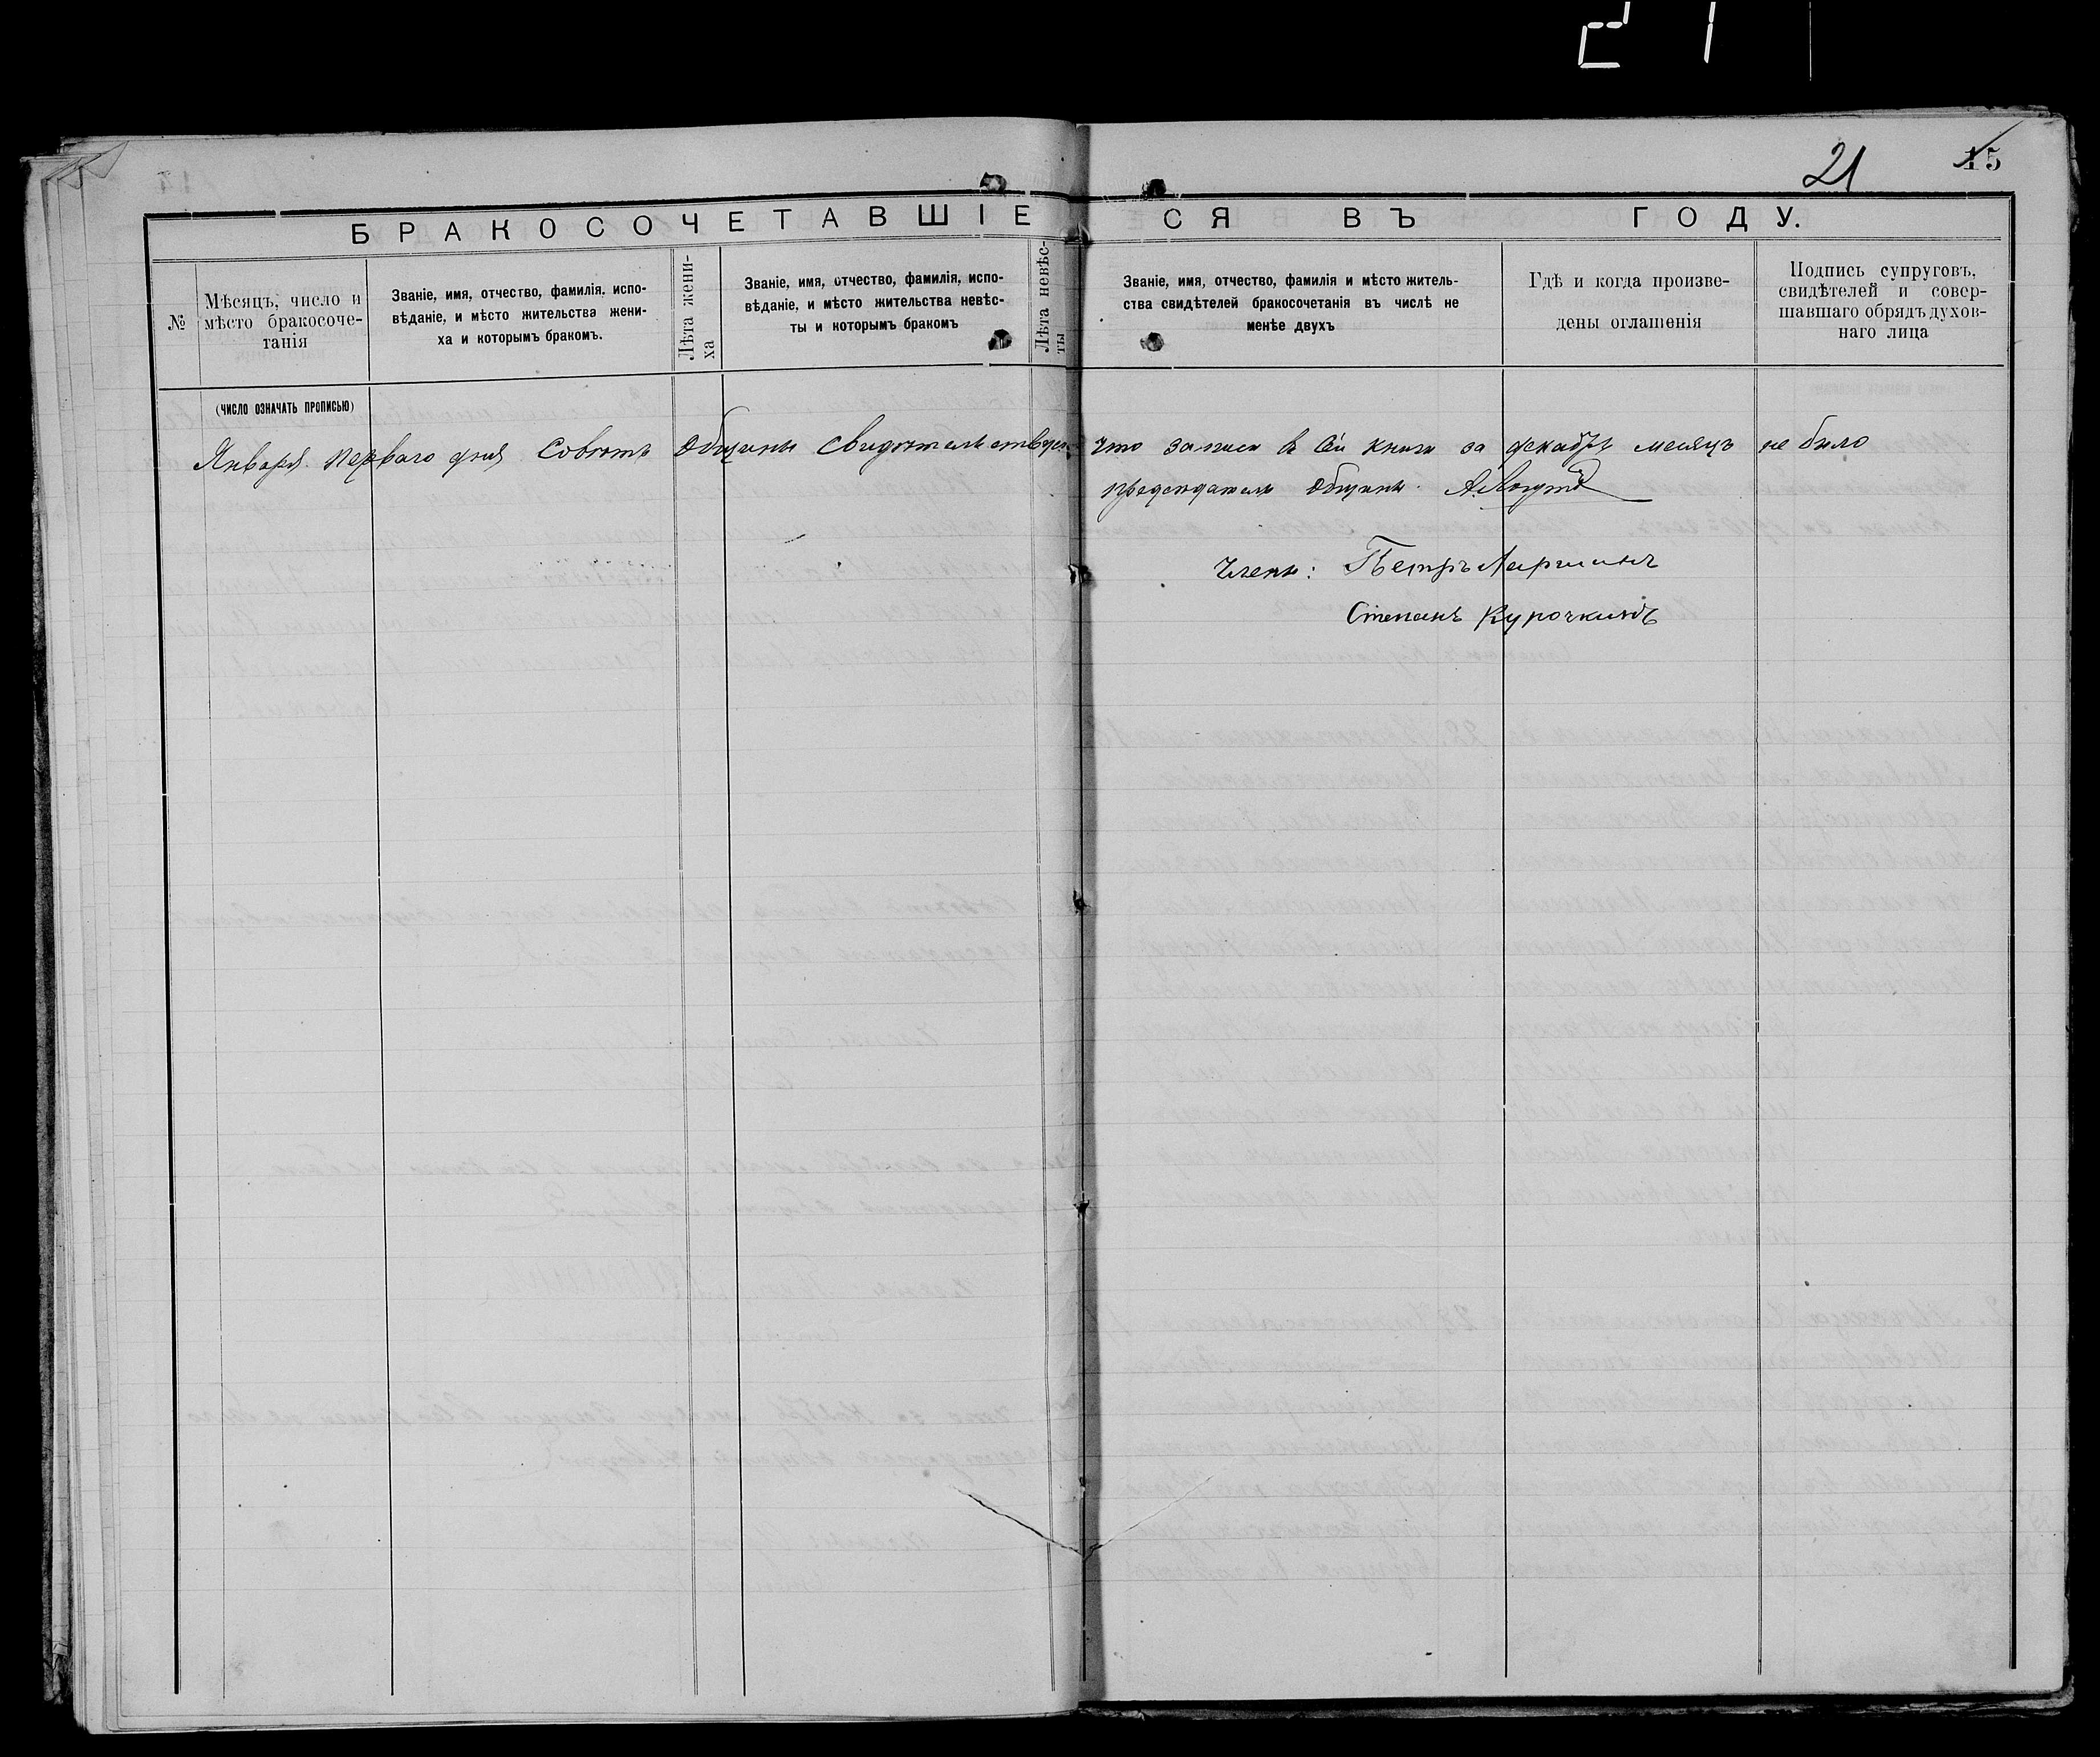 21
21 15
БРАКОСОЧЕТАВШІЕСЯ ВЪ ГОДУ.
№
Мѣсяцъ, число и
мѣсто бракосоче-
танія
Званіе, имя, отчество, фамилія, испо-
вѣданіе, и мѣсто жительства жени-
ха и которымъ бракомъ.
Лѣта жени-
ха
Званіе, имя, отчество, фамилія, испо-
вѣданіе, и мѣсто жительства невѣс-
ты и которымъ бракомъ
Лѣта невѣс-
ты
Званіе, имя, отчество, фамилія и мѣсто житель-
ства свидѣтелей бракосочетанія въ числѣ не
менѣе двухъ
Гдѣ и когда произве-
дены оглашенія
Подпись супруговъ,
свидѣтелей и совер-
шавшаго обрядъ духов-
наго лица
(ЧИСЛО ОЗНАЧАТЬ ПРОПИСЬЮ)
Января перваго дня Совѣтъ Общины что записи в Сей книги за декабрь месяцъ не было
председатель Общины
Члены: Петръ
Степанъ Курочкинъ